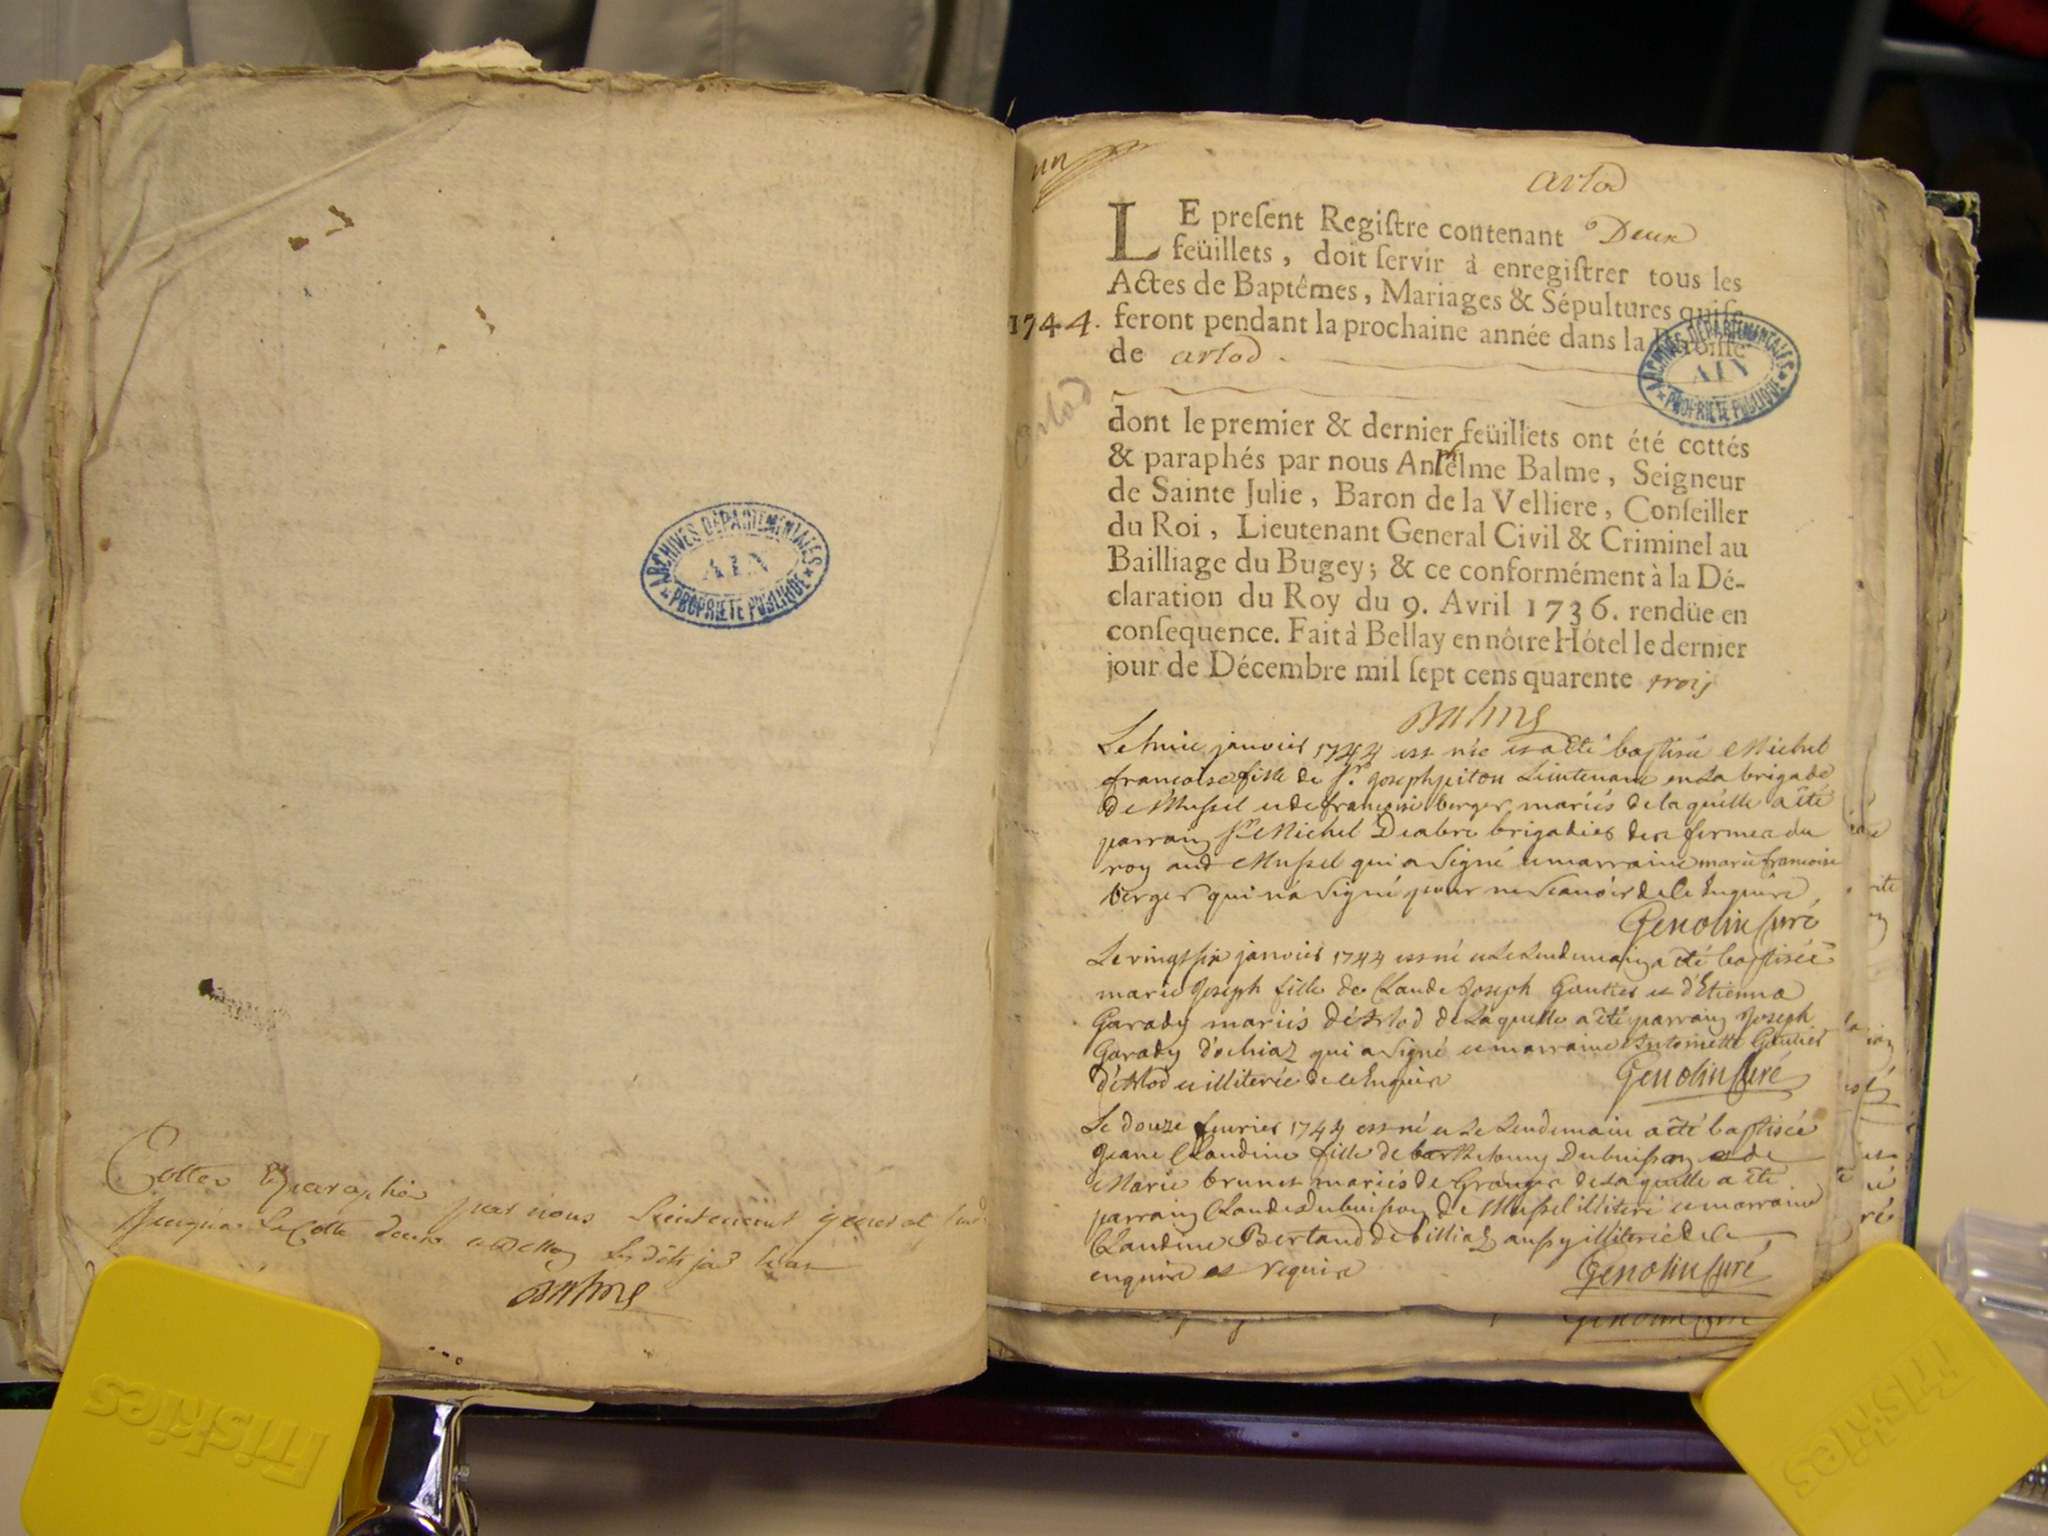 Cottes et paraphés par nous Lieutenant general
jusqu'a la Cotte deux
Balme
ARCHIVES DÉPARTEMENTALES
AIN
PROPRIÉTÉ PUBLIQUE
un
arlod
LE preſent Regiſtre contenant Deux
feüillets, doit ſervir à enregiſtrer tous les
Actes de Baptêmes, Mariages & Sépultures qui ſe
1744. feront pendant la prochaine année dans la Paroiſſe
de arlod.
arlod
ARCHIVES DÉPARTEMENTALES
AIN
PROPRIÉTÉ PUBLIQUE
dont le premier & dernier feüillets ont été cottés
& paraphés par nous Anſelme Balme, Seigneur
de Sainte Julie, Baron de la Velliere, Conſeiller
du Roi, Lieutenant General Civil & Criminel au
Bailliage du Bugey; & ce conformément à la Dé-
claration du Roy du 9. Avril 1736. rendüe en
conſequence. Fait à Bellay en nôtre Hôtel le dernier
jour de Décembre mil ſept cens quarente trois
Balme
janvier 1744 est née et a été baptisée Michel
francoise fille de Sr. Joseph piton Lieutenant en La brigade
de Mussel et de francoise berger mariés de laquelle a été
parrain Sr Michel brigadier des fermes du
roy aud Mussel qui a signé et marraine marie francoise
berger qui n'a signé pour ne scavoir de ce Enquise
Genolin Curé
Le vingt six janvier 1744 est né et Le Lendemain a été baptisée
marie Joseph fille de Claude Joseph Gautier et d'Etienna
Garady mariés d'Arlod de Laquelle a été parrain Joseph
Garady d'ochiaz qui a signé et marraine Antoinette Gautier
d'Arlod et illiterée de ce Enquise
Genolin Curé
Le douze fevrier 1744 est né et Le Lendemain a été baptisée
Jeane Claudine fille de barthelemy Dubuisson et de
Marie brunet mariés de Granges de La quelle a été
parrain Claude Dubuisson de Mussel illiteré et marraine
Claudine Bertand de billiaz aussy illiterée de ce
enquise et requise
Genolin Curé
Genolin Curé
Friskies
Friskies